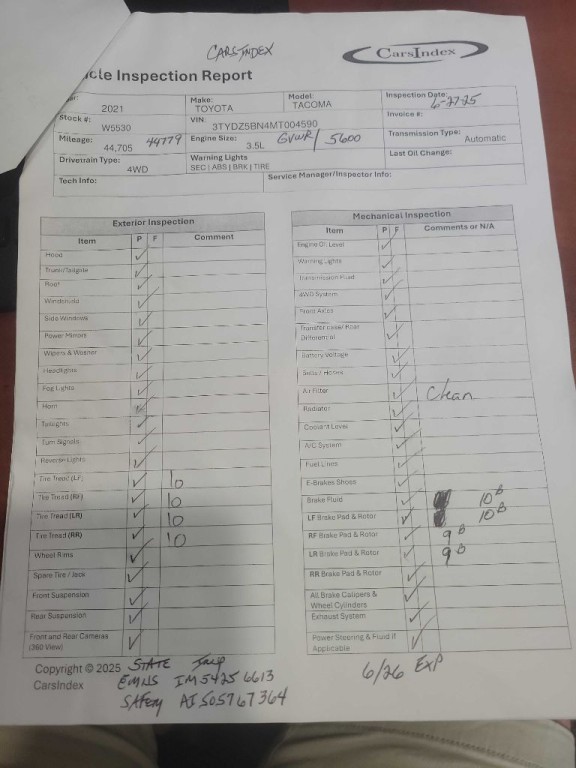 CARSINDEX
CarsIndex
icle Inspection Report
2021
Make:
TOYOTA
Model:
TACOMA
Inspection Date:
6-27-25
Stock #:
W5530
VIN:
3TYDZ5BN4MT004590
Invoice #:
Mileage:
44,705 44779
Engine Size:
3.5L
GVWR/ 5600
Transmission Type:
Automatic
Drivetrain Type:
4WD
Warning Lights
SEC | ABS | BRK | TIRE
Last Oil Change:
Tech Info:
Service Manager/Inspector Info:
Exterior Inspection
Item P F Comment
Hood ✓
Trunk/Tailgate ✓
Roof ✓
Windshield ✓
Side Windows ✓
Power Mirrors ✓
Wipers & Washer ✓
Headlights ✓
Fog Lights ✓
Horn ✓
Taillights ✓
Turn Signals ✓
Reverse Lights ✓
Tire Tread (LF) ✓ 10
Tire Tread (RF) ✓ 10
Tire Tread (LR) ✓ 10
Tire Tread (RR) ✓ 10
Wheel Rims ✓
Spare Tire / Jack ✓
Front Suspension ✓
Rear Suspension ✓
Front and Rear Cameras
(360 View) ✓
Mechanical Inspection
Item P F Comments or N/A
Engine Oil Level ✓
Warning Lights ✓
Transmission Fluid ✓
4WD System ✓
Front Axles ✓
Transfer case/ Rear
Differential ✓
Battery Voltage ✓
Belts / Hoses ✓
Air Filter ✓ Clean
Radiator ✓
Coolant Level ✓
A/C System ✓
Fuel Lines ✓
E-Brakes Shoes ✓
Brake Fluid ✓ 10
LF Brake Pad & Rotor ✓ 10
RF Brake Pad & Rotor ✓ 9
LR Brake Pad & Rotor ✓ 9
RR Brake Pad & Rotor ✓
All Brake Calipers &
Wheel Cylinders ✓
Exhaust System ✓
Power Steering & Fluid if
Applicable ✓
Copyright © 2025
CarsIndex
STATE Insp
EMIIS IM5425 6613
SAFETY AI505767364
6/26 EXP